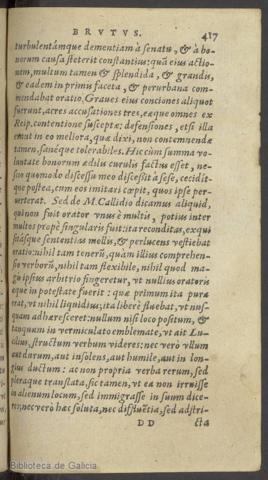 BRVTVS. 417
turbulentámque dementiam à senatu, & à bo-
norum causa steterit constantius: quā eius actio-
nem, multum tamen & splendida, & grandis,
& eadem in primis faceta, & perurbana com-
mendabat oratio. Graues eius conciones aliquot
fuerunt, acres accusationes tres, eæque omnes ex
Reip. contentione susceptæ: defensiones, etsi illa
erant in eo meliora, quæ dixi, non contemnendæ
tamen, sanéque tolerabiles. Hic cùm summa vo-
luntate bonorum ædilis curulis factus esset, ne-
scio quomodo discessu meo discessit à sese, cecidit-
que postea, cum eos imitari cœpit, quos ipse per-
uerterat. Sed de M. Callidio dicamus aliquid,
qui non fuit orator vnus è multis, potius inter
multos propè singularis fuit: ita reconditas, exqui
sitásque sententias mollis, & perlucens vestiebat
oratio: nihil tam tenerū, quàm illius comprehen-
sio verborū, nihil tam flexibile, nihil quod ma-
gis ipsius arbitrio fingeretur, vt nullius oratoris
æque in potestate fuerit: quæ primum ita pura
erat, vt nihil liquidius; ita liberè fluebat, vt nus-
quam adhæresceret: nullum nisi loco positum, &
tanquam in vermiculato emblemate, vt ait Lu-
cilius, structum verbum videres: nec verò vllum
aut durum, aut insolens, aut humile, aut in lon-
gius ductum: ac non propria verba rerum, sed
pleraque translata. sic tamen, vt ea non irruisse
in alienum locum, sed immigrasse in suum dice-
res; nec verò hæc soluta, nec diffluētia, sed adstri-
DD cta
Biblioteca de Galicia